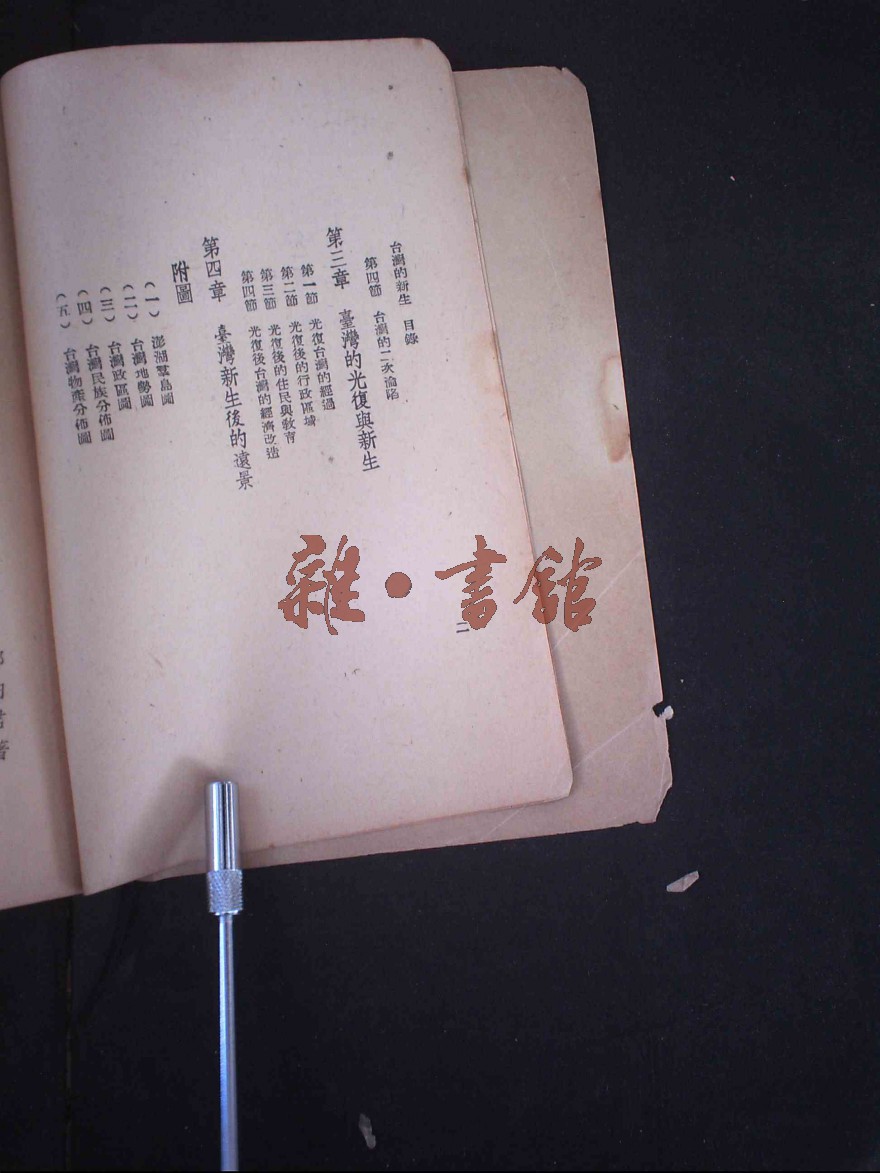 台灣的新生 目錄
第四節 台灣的二次淪陷
第三章 臺灣的光復與新生
第一節 光復台灣的經過
第二節 光復後的行政區域
第三節 光復後的住民與教育
第四節 光復後台灣的經濟改造
第四章 臺灣新生後的遠景
附圖
(一) 澎湖羣島圖
(二) 台灣地勢圖
(三) 台灣政區圖
(四) 台灣民族分佈圖
(五) 台灣物產分佈圖
二
雜·書館
著